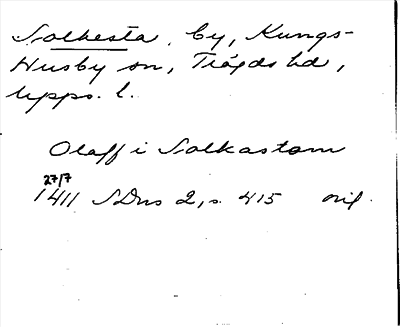 Solkesta, by, Kungs-
Husby sn, Trögds hd,
Upps. l.
Olaff i Solkastom
27/7
1411 SDns 2, s. 415 orig.